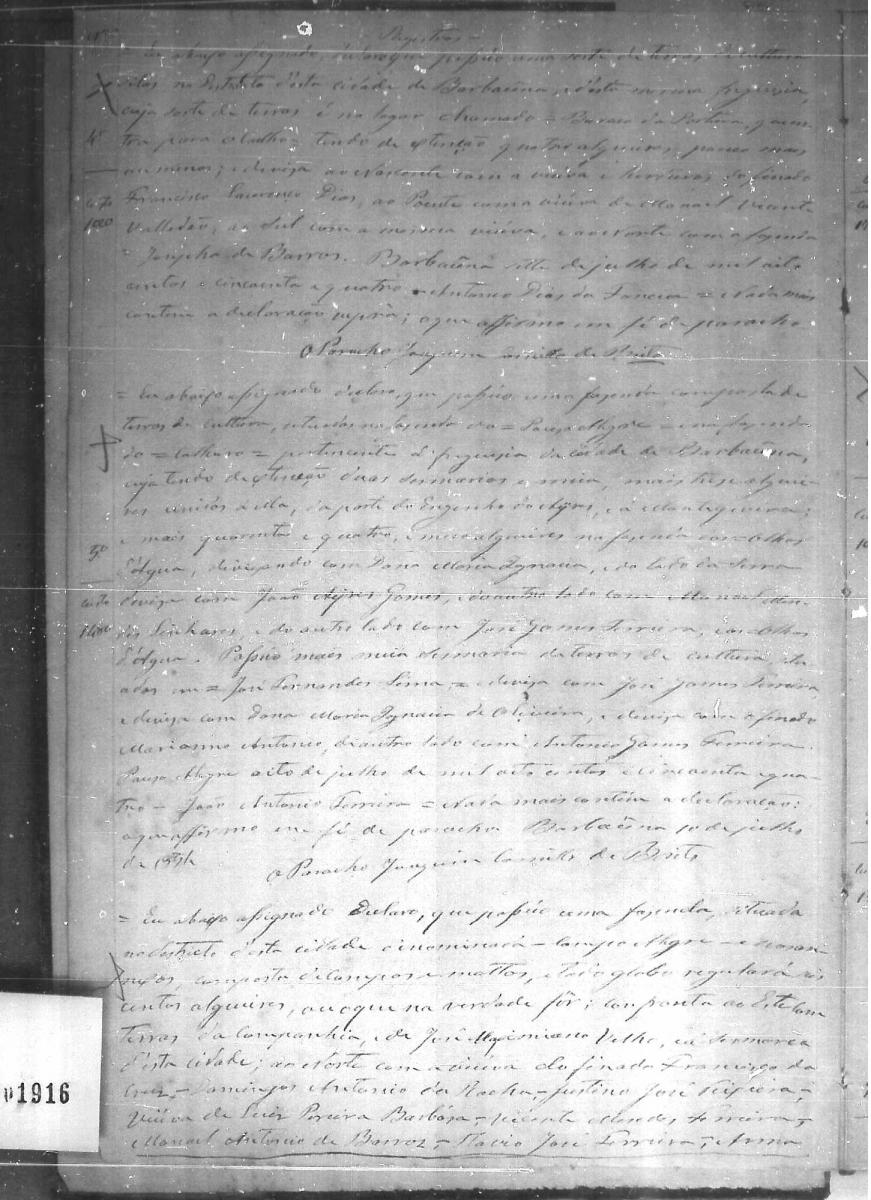 Registros
Eu abaixo assignado, declaro que possúo uma sorte de terras de cultura
sitas no Destricto d'esta cidade de Barbacena, e d'esta mesma freguezia,
cuja sorte de terras é no lugar chamado = Buraco da
tra para o tendo de extenção quatro alqueires, pouco mais
ou menos; e deviza ao Nascente com a viúva e herdeiros do finado
Francisco Lourenço Dias, ao Poente com a viúva de Manoel Vicente
ao Sul com a mesma viúva, e ao Norte com a fazenda
= Josepha de Barros. Barbacena sette de julho de mil oito
centos e cincoenta e quatro = Antonio Dias da Fonceca = Nada mais
contem a declaração suprà; o que affirmo em fé de parocho
O Parocho Joaquim Camillo de Brito
= Eu abaixo assignado declaro, que possúo uma fazenda composta de
terras de cultura, situadas na fazenda do = Pouso Alegre = e na fazenda
do = = pertencente á freguezia da cidade de Barbacena,
cuja tendo de extenção duas sesmarias e meia, mais treze alquei-
res unidos á ella, da parte do Engenho do Ayres, e á Mantiqueira;
e mais quarenta e quatro, e meio alqueires na fazenda dos = Olhos
d'Agua, devizando com Dona Maria Ignacia, e do lado da Serra
deviza com João Ayres Gomes, e do outro lado com Manoel Men-
des Linhares, e do outro lado com José Gomes Ferreira, e os = Olhos
d'Agua. Possúo mais meia Sesmaria de terras de cultura, situ-
adas em = José Fernandes Lima, = e deviza com José Gomes Ferreira
e deviza com Dona Maria Ignacia de Oliveira, e deviza com o finado
Marianno Antonio, de outro lado com Antonio Gomes Ferreira.
Pouso Alegre oito de julho de mil oito centos e cincoenta e qua-
tro = João Antonio Ferreira = Nada mais contém a declaração;
o que affirmo em fé de parocho Barbacena 10 de julho
de 1854
O Parocho Joaquim Camillo de Brito
= Eu abaixo assignado Declaro, que possúo uma fazenda, situada
no destricto d'esta cidade denominada = Campo Alegre =
composta de Campos e mattos, e todo globo regulará
centos alqueires, ou o que na verdade fôr; confronta ao Este com
terras da Companhia, e de José Maximiano Velho, e á Sesmarea
d'esta cidade; ao Norte com a viúva do finado Francisco da
Cruz, = Domingos Antonio da Rocha =, Justino José Teixeira =,
Viúva de Luiz Pereira Barbóza = Vicente Mendes Ferreira =,
Manoel Antonio de Barros = José Ferreira =, Anna
01916